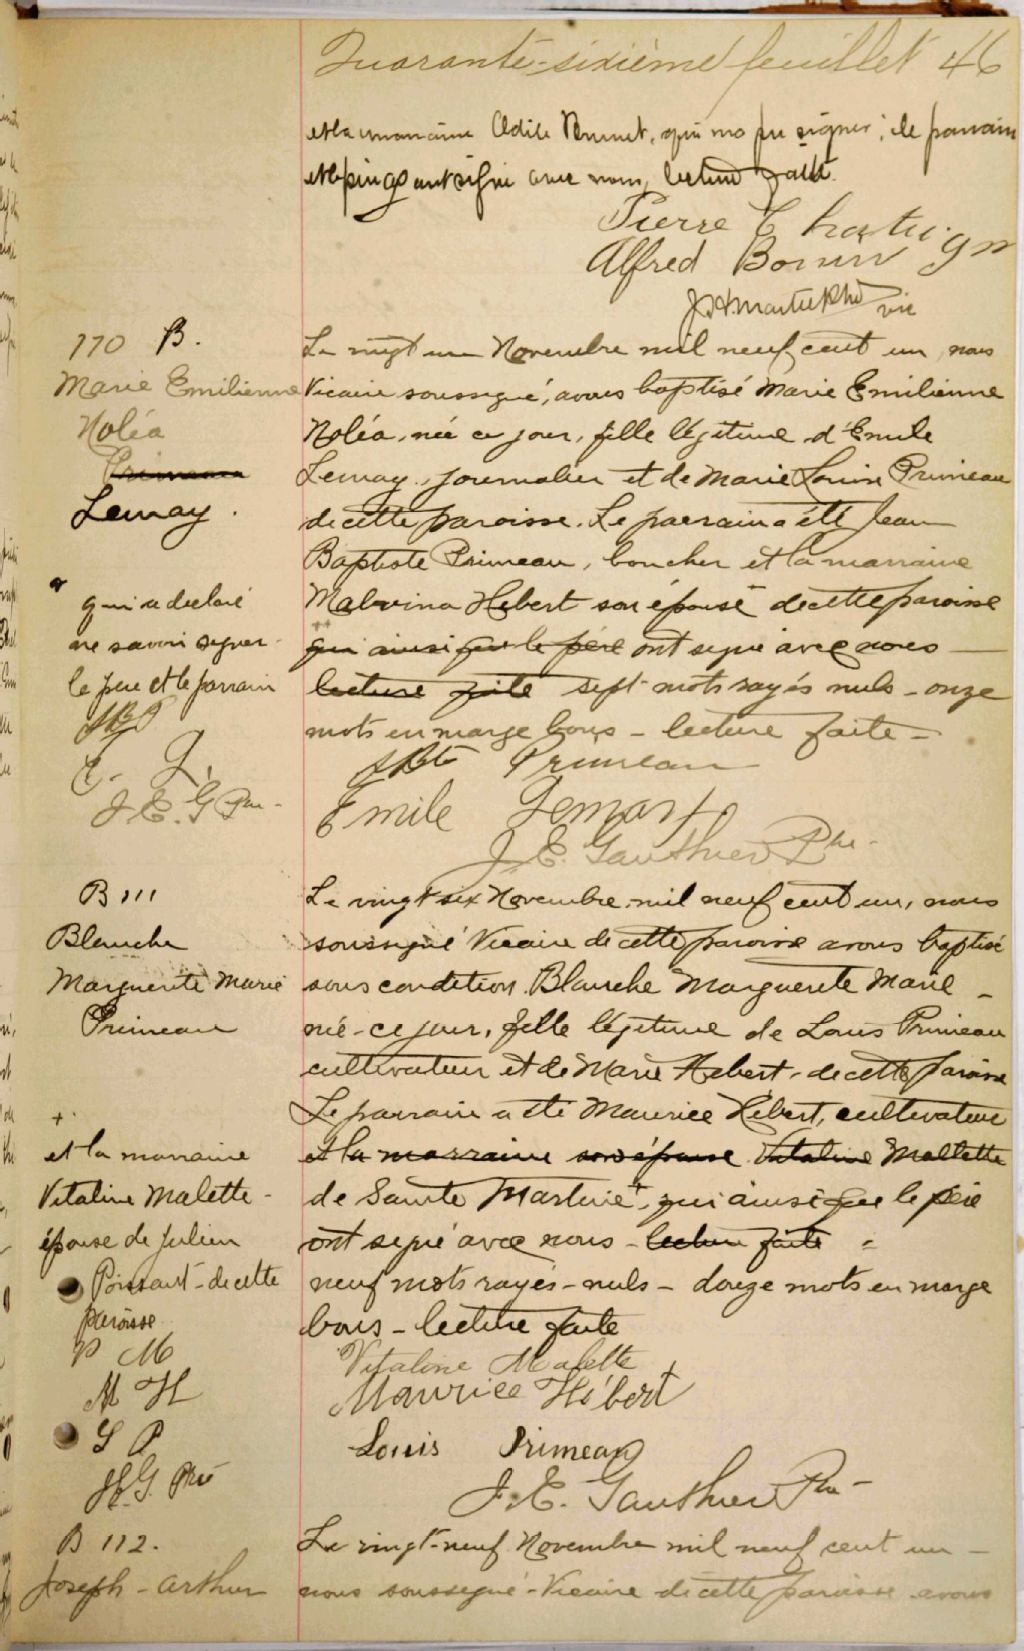 Quarante-sixième feuillet 46
et la marraine Odile Brunet, qui n'a pu signer; le parrain
et le père ont signé avec nous, lecture faite.
Pierre
Alfred
vic
110 B.
Marie Emilienne
Noléa
Primeau
Lemay.
Le vingt un Novembre mil neuf cent un, nous
Vicaire soussigné, avons baptisé Marie Emilienne
Noléa, née ce jour, fille légitime d'Emile
Lemay, journalier et de Marie Louise Primeau
de cette paroisse. Le parrain a été Jean
Baptiste Primeau, boucher et la marraine
Malvina Hebert son épouse de cette paroisse
qui ainsi que le père ont signé avec nous —
lecture faite sept mots rayés nuls - onze
mots en marge bons - lecture faite -
qui a déclaré
ne savoir signer -
le père et le parrain
JBP
E. L.
J. E. G Ptre -
JBte Primeau
Emile Lemay
J. E. Gauthier Ptre -
B 111
Blanche
Marguerite Marie
Primeau
Le vingt six Novembre mil neuf cent un, nous
soussigné Vicaire de cette paroisse avons baptisé
sous condition Blanche Marguerite Marie -
née - ce jour, fille légitime de Louis Primeau
cultivateur et de Marie Hebert - de cette paroisse
Le parrain a été Maurice Hébert, cultivateur
et la marraine son épouse Vitaline Mallette
de Sainte Martine +, qui ainsi que le père
ont signé avec nous - lecture faite =
neuf mots rayés - nuls - douze mots en marge
bons - lecture faite
+
et la marraine
Vitaline Malette -
épouse de Julien
Poissant - de cette
paroisse
V M
M H
L P
J.E.G. Ptre
Vitaline Malette
Maurice Hébert
Louis Primeau
J. E. Gauthier Ptre -
B 112.
Joseph - Arthur
Le vingt-neuf Novembre mil neuf cent un -
nous soussigné - Vicaire de cette paroisse avons